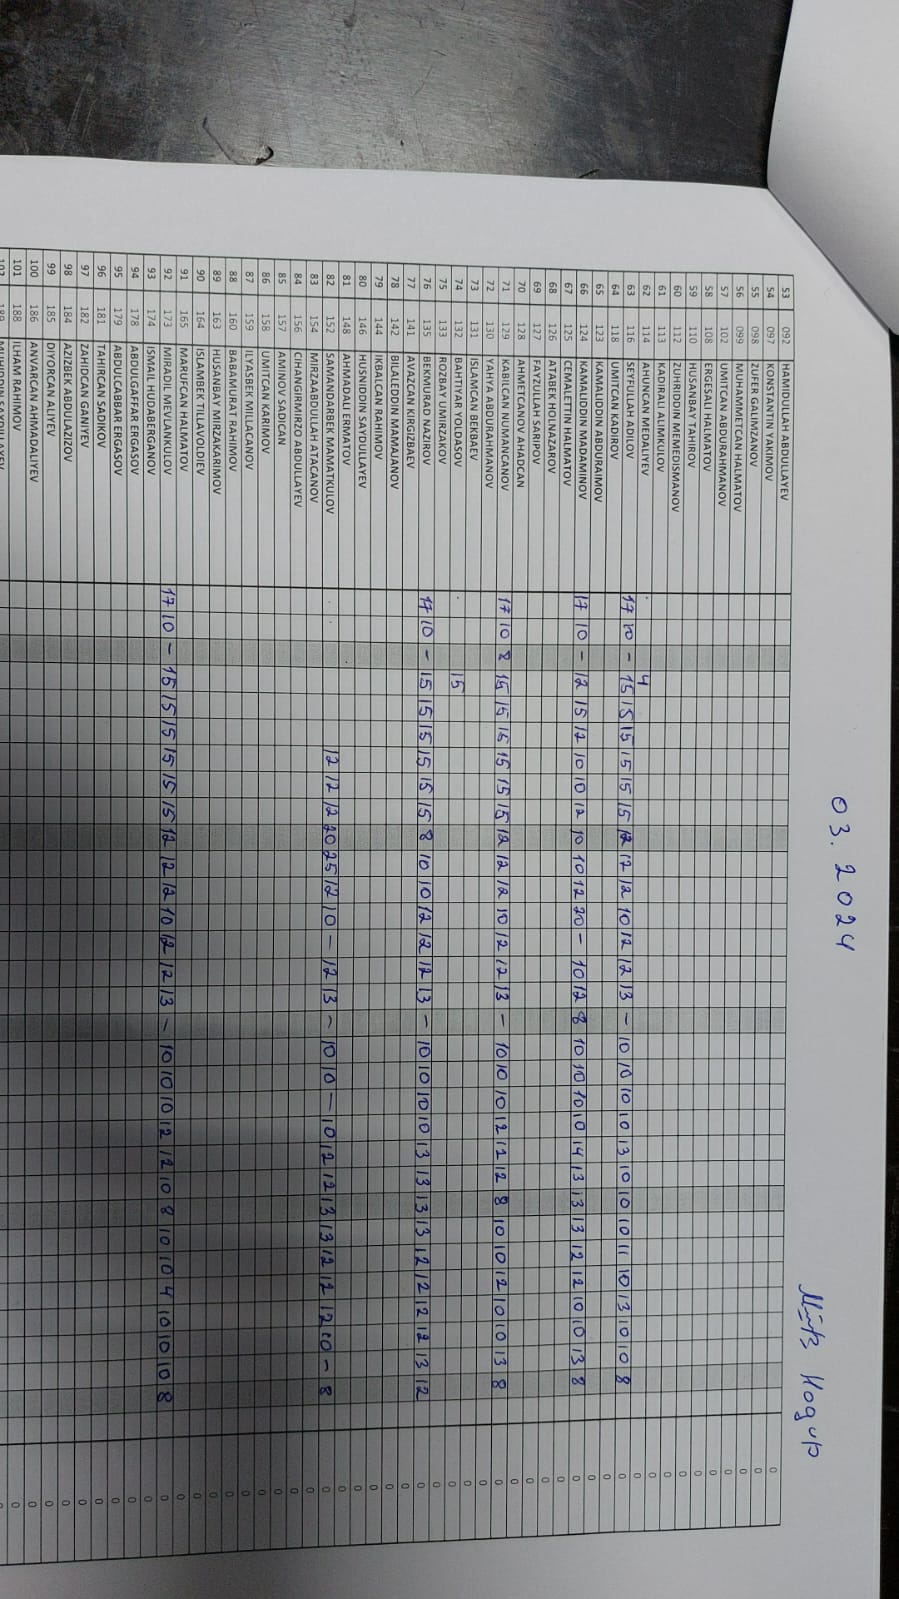 03.2024
Нодир
53 092 HAMIDULLAH ABDULLAYEV
54 097 KONSTANTIN YAKIMOV 0
55 098 ZUFER GALIMZANOV 0
56 099 MUHAMMETCAN HALMATOV 0
57 102 UMITCAN ABDURAHMANOV 0
58 108 ERGESALI HALMATOV 0
59 110 HUSANBAY TAHIROV 0
60 112 ZUHRIDDIN MEMEDISMANOV 0
61 113 KADIRALI ALIMKULOV 0
62 114 AHUNCAN MEDALIYEV 4 0
63 116 SEYFULLAH ADILOV 17 10 - 15 15 15 15 15 15 12 12 12 10 12 12 13 - 10 10 10 10 13 10 10 10 11 10 13 10 10 8 0
64 118 UMITCAN KADIROV 0
65 123 KAMALIDDIN ABDURAIMOV 0
66 124 KAMALIDDIN MADAMINOV 17 10 - 12 15 12 10 10 12 10 10 12 20 - 10 12 8 10 10 10 10 14 13 13 13 12 12 10 10 13 8 0
67 125 CEMALETTIN HALMATOV 0
68 126 ATABEK HOLNAZAROV 0
69 127 FAYZULLAH SARIPOV 0
70 128 AHMETCANOV AHADCAN 0
71 129 KABILCAN NUMANCANOV 17 10 8 15 15 15 15 15 15 12 12 12 10 12 12 13 - 10 10 10 12 12 12 8 10 10 12 10 10 13 8 0
72 130 YAHYA ABDURAHMANOV 0
73 131 ISLAMCAN BEKBAEV 0
74 132 BAHTIYAR YOLDASOV 15 0
75 133 ROZBAY UMIRZAKOV 0
76 135 BEKMURAD NAZIROV 17 10 - 15 15 15 15 15 15 8 10 10 12 12 12 13 - 10 10 10 10 13 13 13 13 12 12 12 12 13 12 0
77 141 AVAZCAN KIRGIZBAEV 0
78 142 BILALEDDIN MAMAJANOV 0
79 144 IKBALCAN RAHIMOV 0
80 146 HUSNIDDIN SAYDULLAYEV 0
81 148 AHMADALI ERMATOV 0
82 152 SAMANDARBEK MAMATKULOV 12 12 12 20 25 12 10 - 12 13 - 10 10 - 10 12 12 13 13 12 12 12 10 - 8 0
83 154 MIRZAABDULLAH ATACANOV 0
84 156 CIHANGIRMIRZO ABDULLAYEV 0
85 157 AMINOV SADICAN 0
86 158 UMITCAN KARIMOV 0
87 159 ILYASBEK MILLACANOV 0
88 160 BABAMURAT RAHIMOV 0
89 163 HUSANBAY MIRZAKARIMOV 0
90 164 ISLAMBEK TILLAVOLDIEV 0
91 165 MARUFCAN HALMATOV 0
92 173 MIRADIL MEVLANKULOV 17 10 - 15 15 15 15 15 15 12 12 12 10 12 12 13 - 10 10 10 12 12 10 8 10 10 4 10 10 10 8 0
93 174 ISMAIL HUDABERGANOV 0
94 178 ABDULGAFFAR ERGASOV 0
95 179 ABDULCABBAR ERGASOV 0
96 181 TAHIRCAN SADIKOV 0
97 182 ZAHIDCAN GANIYEV 0
98 184 AZIZBEK ABDULAZIZOV 0
99 185 DIYORCAN ALIYEV 0
100 186 ANVARCAN AHMADALIYEV 0
101 188 ILHAM RAHIMOV 0
102 189 MUHIDDIN SAYDILLAYEV